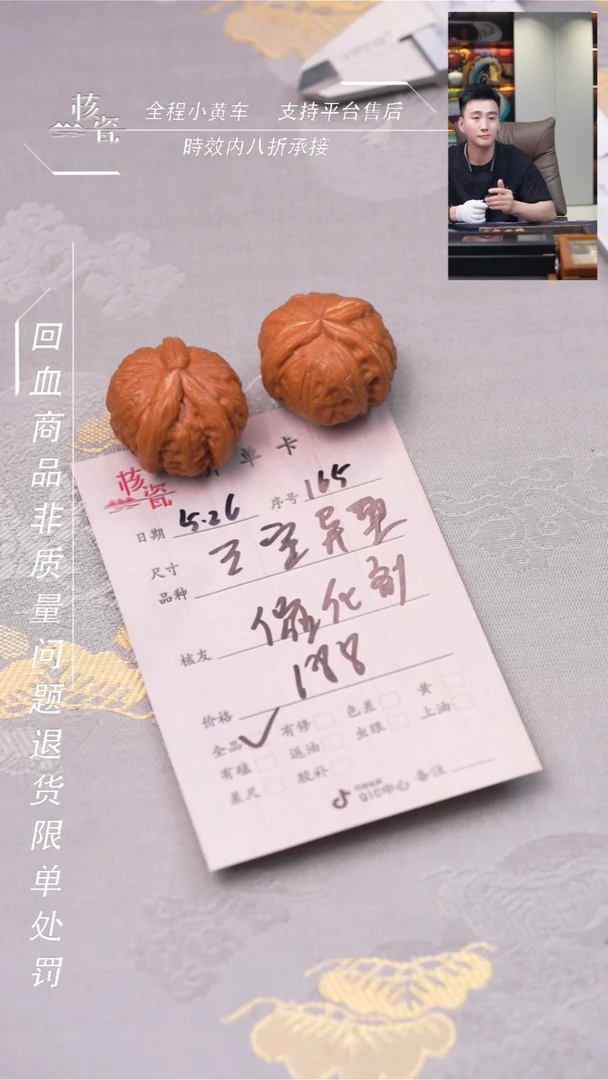 核瓷
全程小黄车 支持平台售后
時效内八折承接
回血商品非质量问题退货限单处罚
核瓷 单卡
日期 5.26 序号 165
尺寸
品种
催化剂
核友
188
价格
全品✓ 有修 色差 黄
有磕 返油 虫眼 上油
差尺 胶补
QIC中心 备注